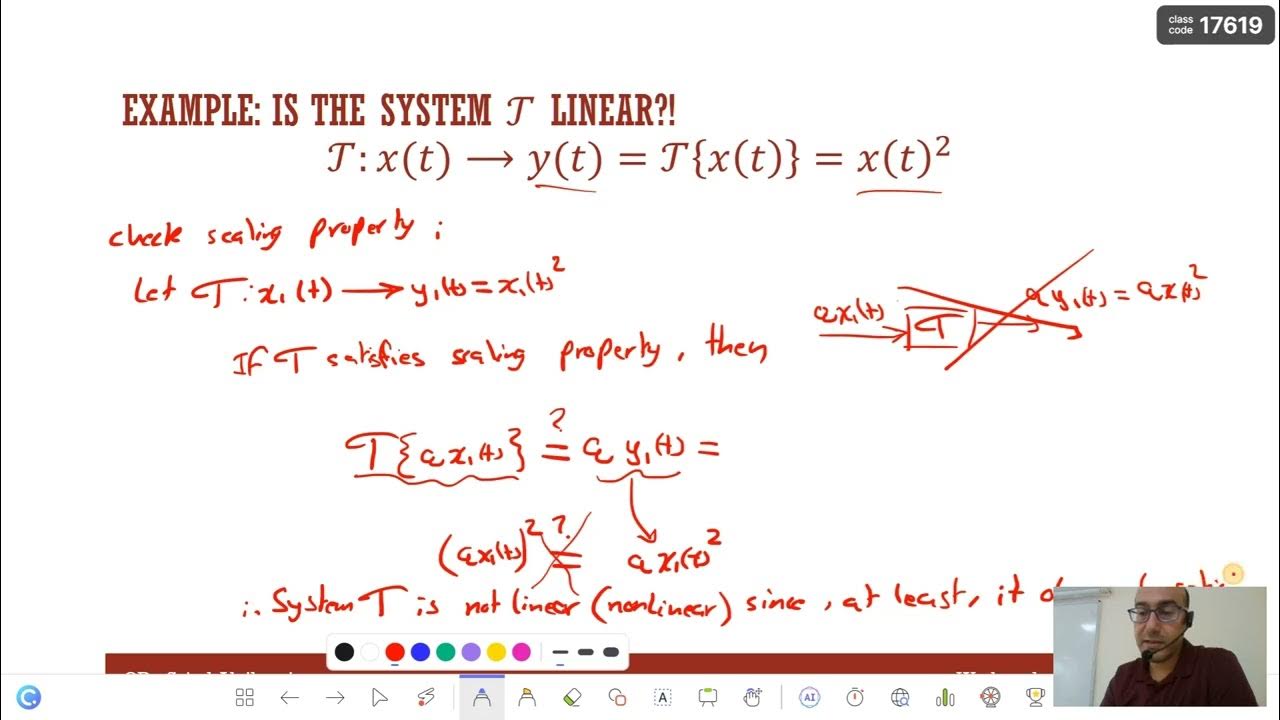 class code 17619
EXAMPLE: IS THE SYSTEM 𝒯 LINEAR?!
𝒯: x(t) ⟶ y(t) = 𝒯{x(t)} = x(t)²
check scaling property :
Let 𝒯: x₁(t) ⟶ y₁(t) = x₁(t)²
ax₁(t) 𝒯 a y₁(t) = a x(t)²
If 𝒯 satisfies scaling property, then
𝒯{a x₁(t)} ?= a y₁(t) =
(a x₁(t))² ?= a x₁(t)²
∴ System 𝒯 is not linear (nonlinear) since, at least, it
A
AI